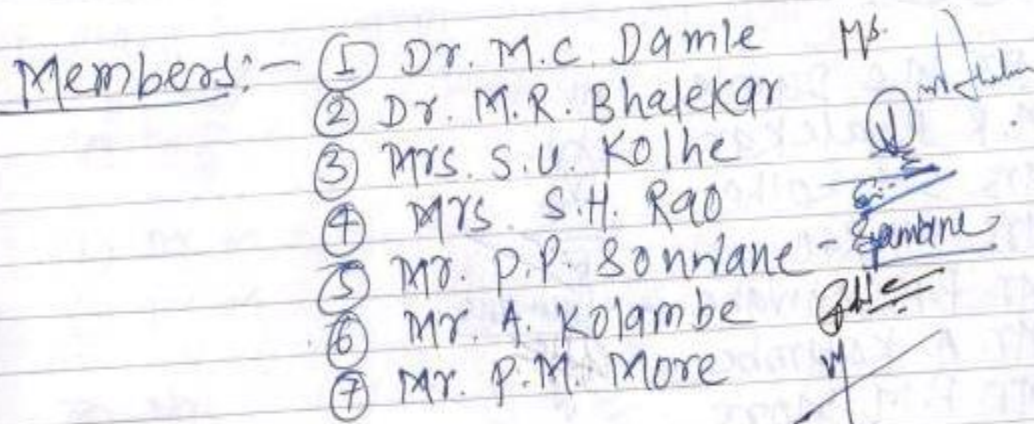 Members:- ① Dr. M.C. Damle
② Dr. M.R. Bhalekar
③ Mrs. S.U. Kolhe
④ Mrs. S.H. Rao
⑤ Mr. P.P. Sonwane -
⑥ Mr. A. Kolambe
⑦ Mr. P.M. More